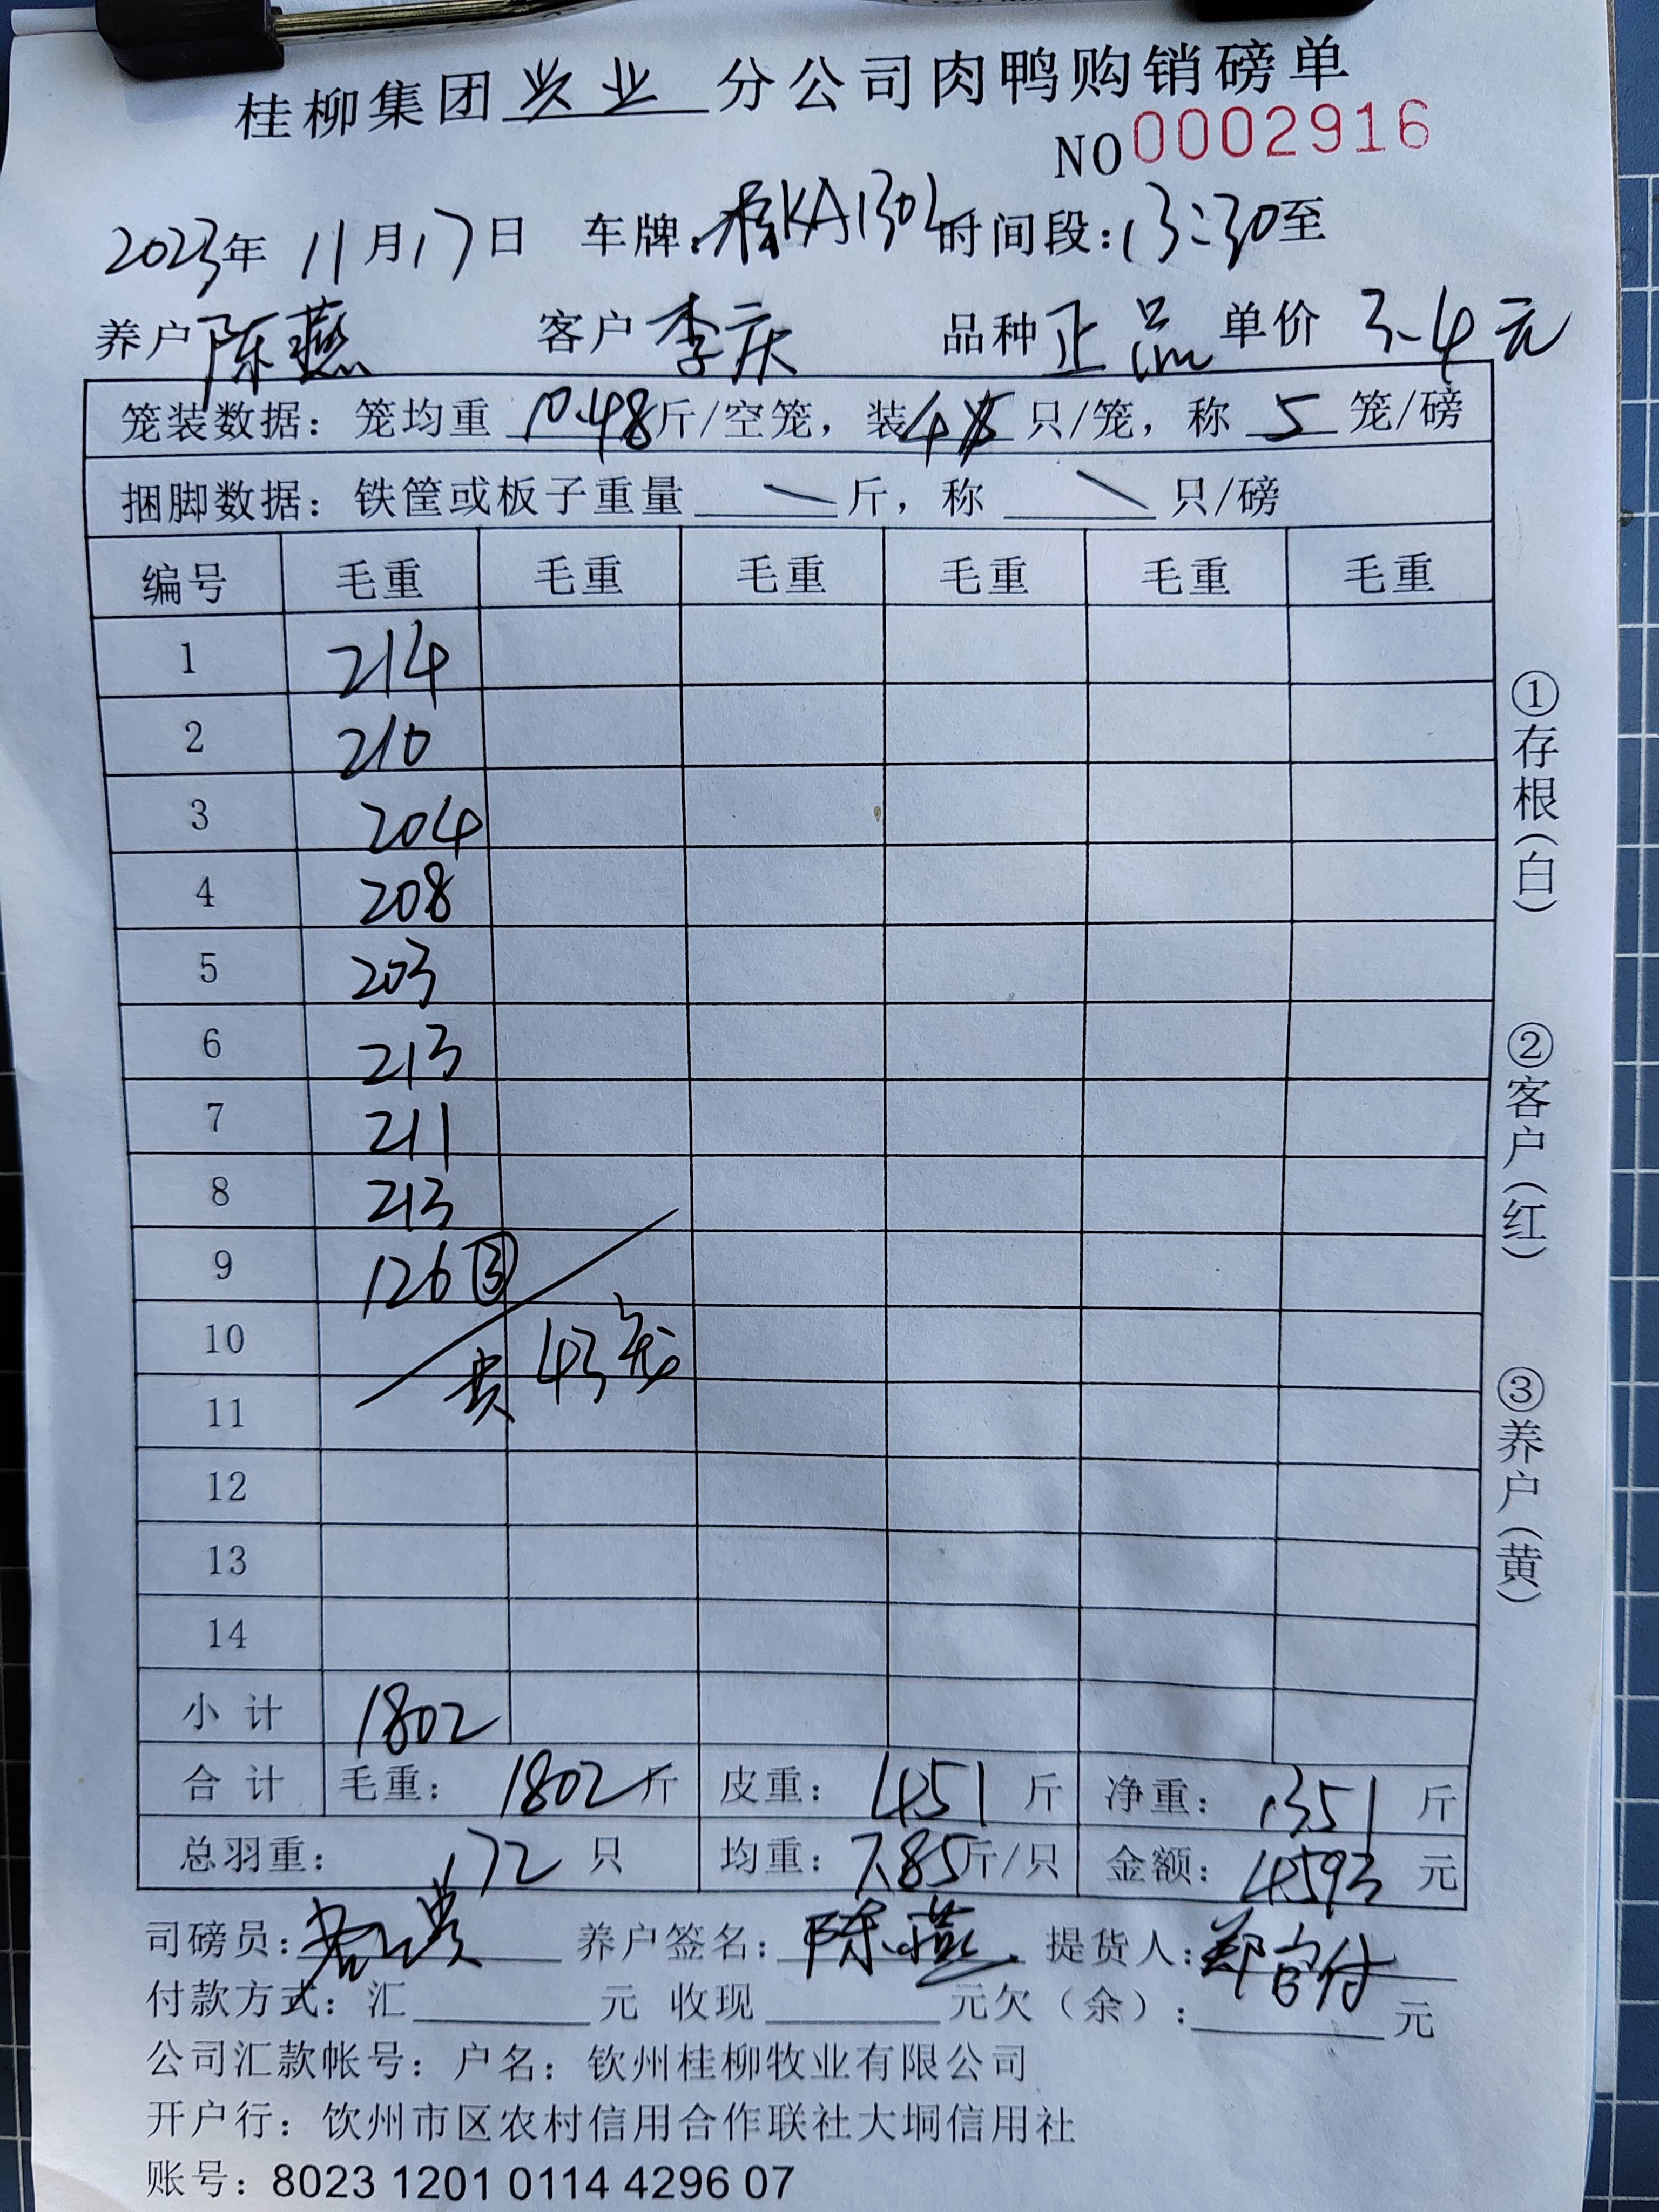 桂柳集团兴业分公司肉鸭购销磅单
NO 0002916
2023年 11月17日 车牌:桂KA1302 时间段:13:30至
养户 陈燕 客户 李庆 品种 正品 单价 3.4元
笼装数据: 笼均重 10.48斤/空笼, 装4只/笼, 称 5 笼/磅
捆脚数据: 铁筐或板子重量 \ 斤, 称 \ 只/磅
编号 毛重 毛重 毛重 毛重 毛重 毛重
1 214
2 210
3 204
4 208
5 203
6 213
7 211
8 213
9 126 ③
10 共43笼
11
12
13
14
小计 1802
合计 毛重: 1802斤 皮重: 451 斤 净重: 1351 斤
总羽重: 172 只 均重: 7.85斤/只 金额: 4593 元
司磅员: 养户签名: 陈燕 提货人:
付款方式: 汇 元 收现 元欠(余): 元
公司汇款帐号: 户名: 钦州桂柳牧业有限公司
开户行: 饮州市区农村信用合作联社大垌信用社
账号: 8023 1201 0114 4296 07
①存根(白)
②客户(红)
③养户(黄)